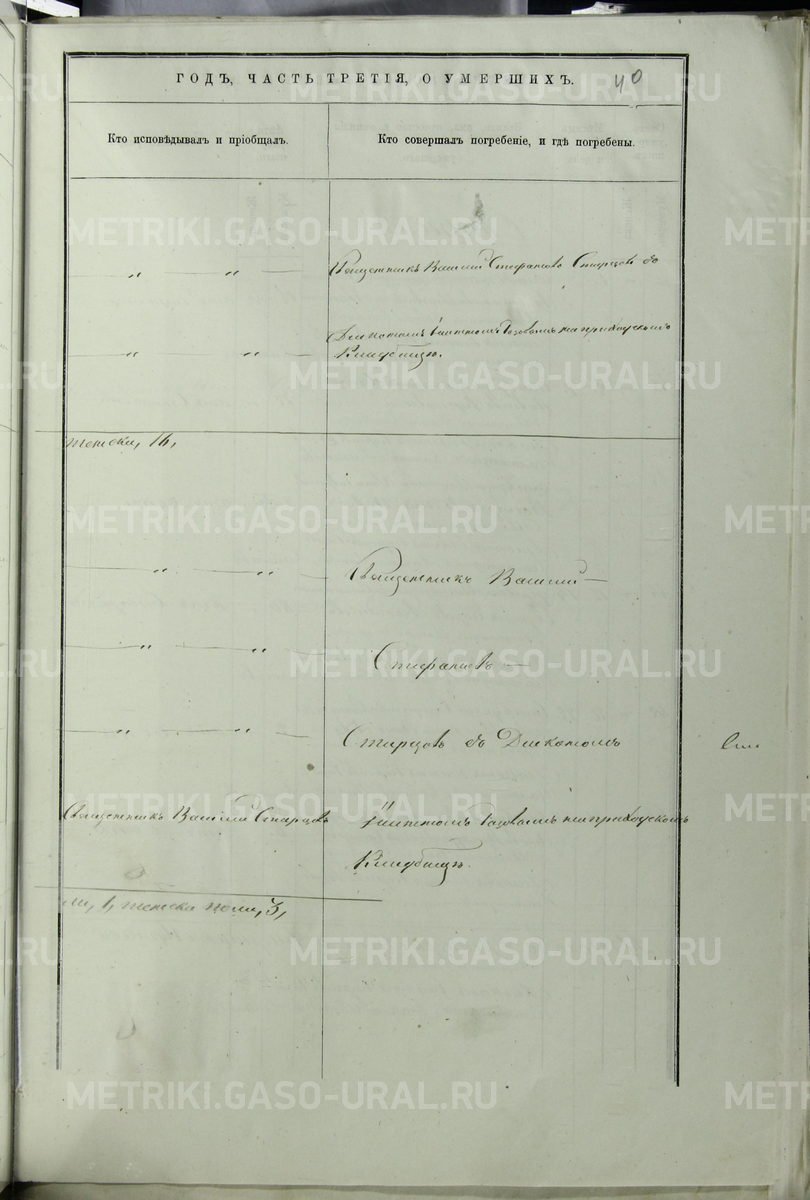 ГОДЪ, ЧАСТЬ ТРЕТІЯ, О УМЕРШИХЪ.
40
Кто исповѣдывалъ и пріобщалъ.
Кто совершалъ погребеніе, и гдѣ погребены.
Священникъ Василій Стефановъ Старцовъ съ
Діякономъ на приходскомъ
Кладбищѣ.
женска, 16,
Священникъ Василій
Стефановъ
Старцовъ съ Діякономъ
Священникъ Василій Старцовъ
на приходскомъ
Кладбищѣ.
1, женска пола, 3,
METRIKI.GASO-URAL.RU